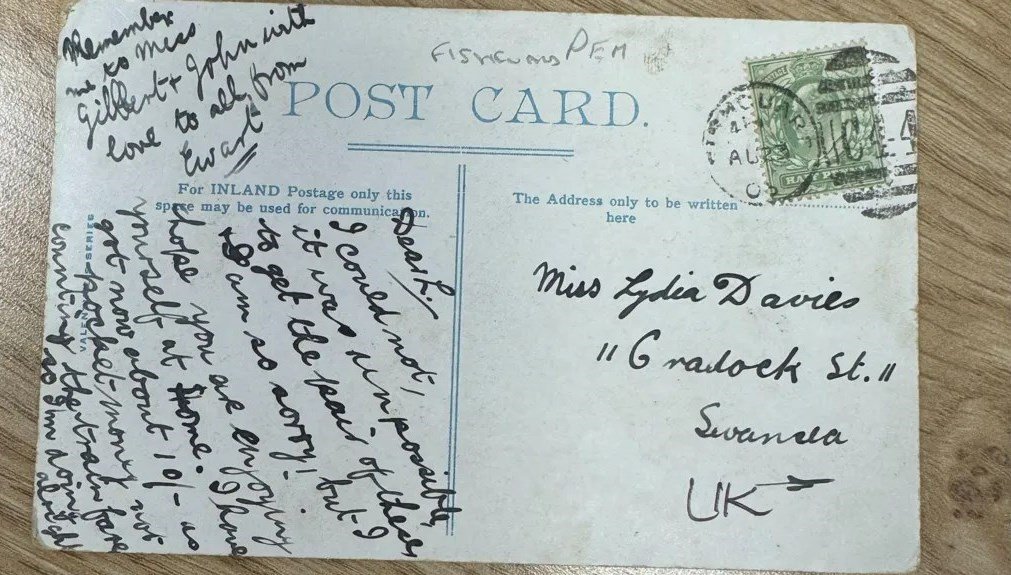 Remember
me to Miss
Gilbert + John with
love to all from
Ewart
FISHGUARD PEM
POST CARD.
For INLAND Postage only this
space may be used for communication.
The Address only to be written
here
AU 23
Dear L.
I could not,
it was unpossible,
to get the pair of these
but I
am so sorry!
I hope you are enjoying
yourself at home. I have
got now about 10/- as
pocket money not
counting the train fare
so I'm doing
alright
VALEN SERIES
Miss Lydia Davies
"Cradock St."
Swansea
UK